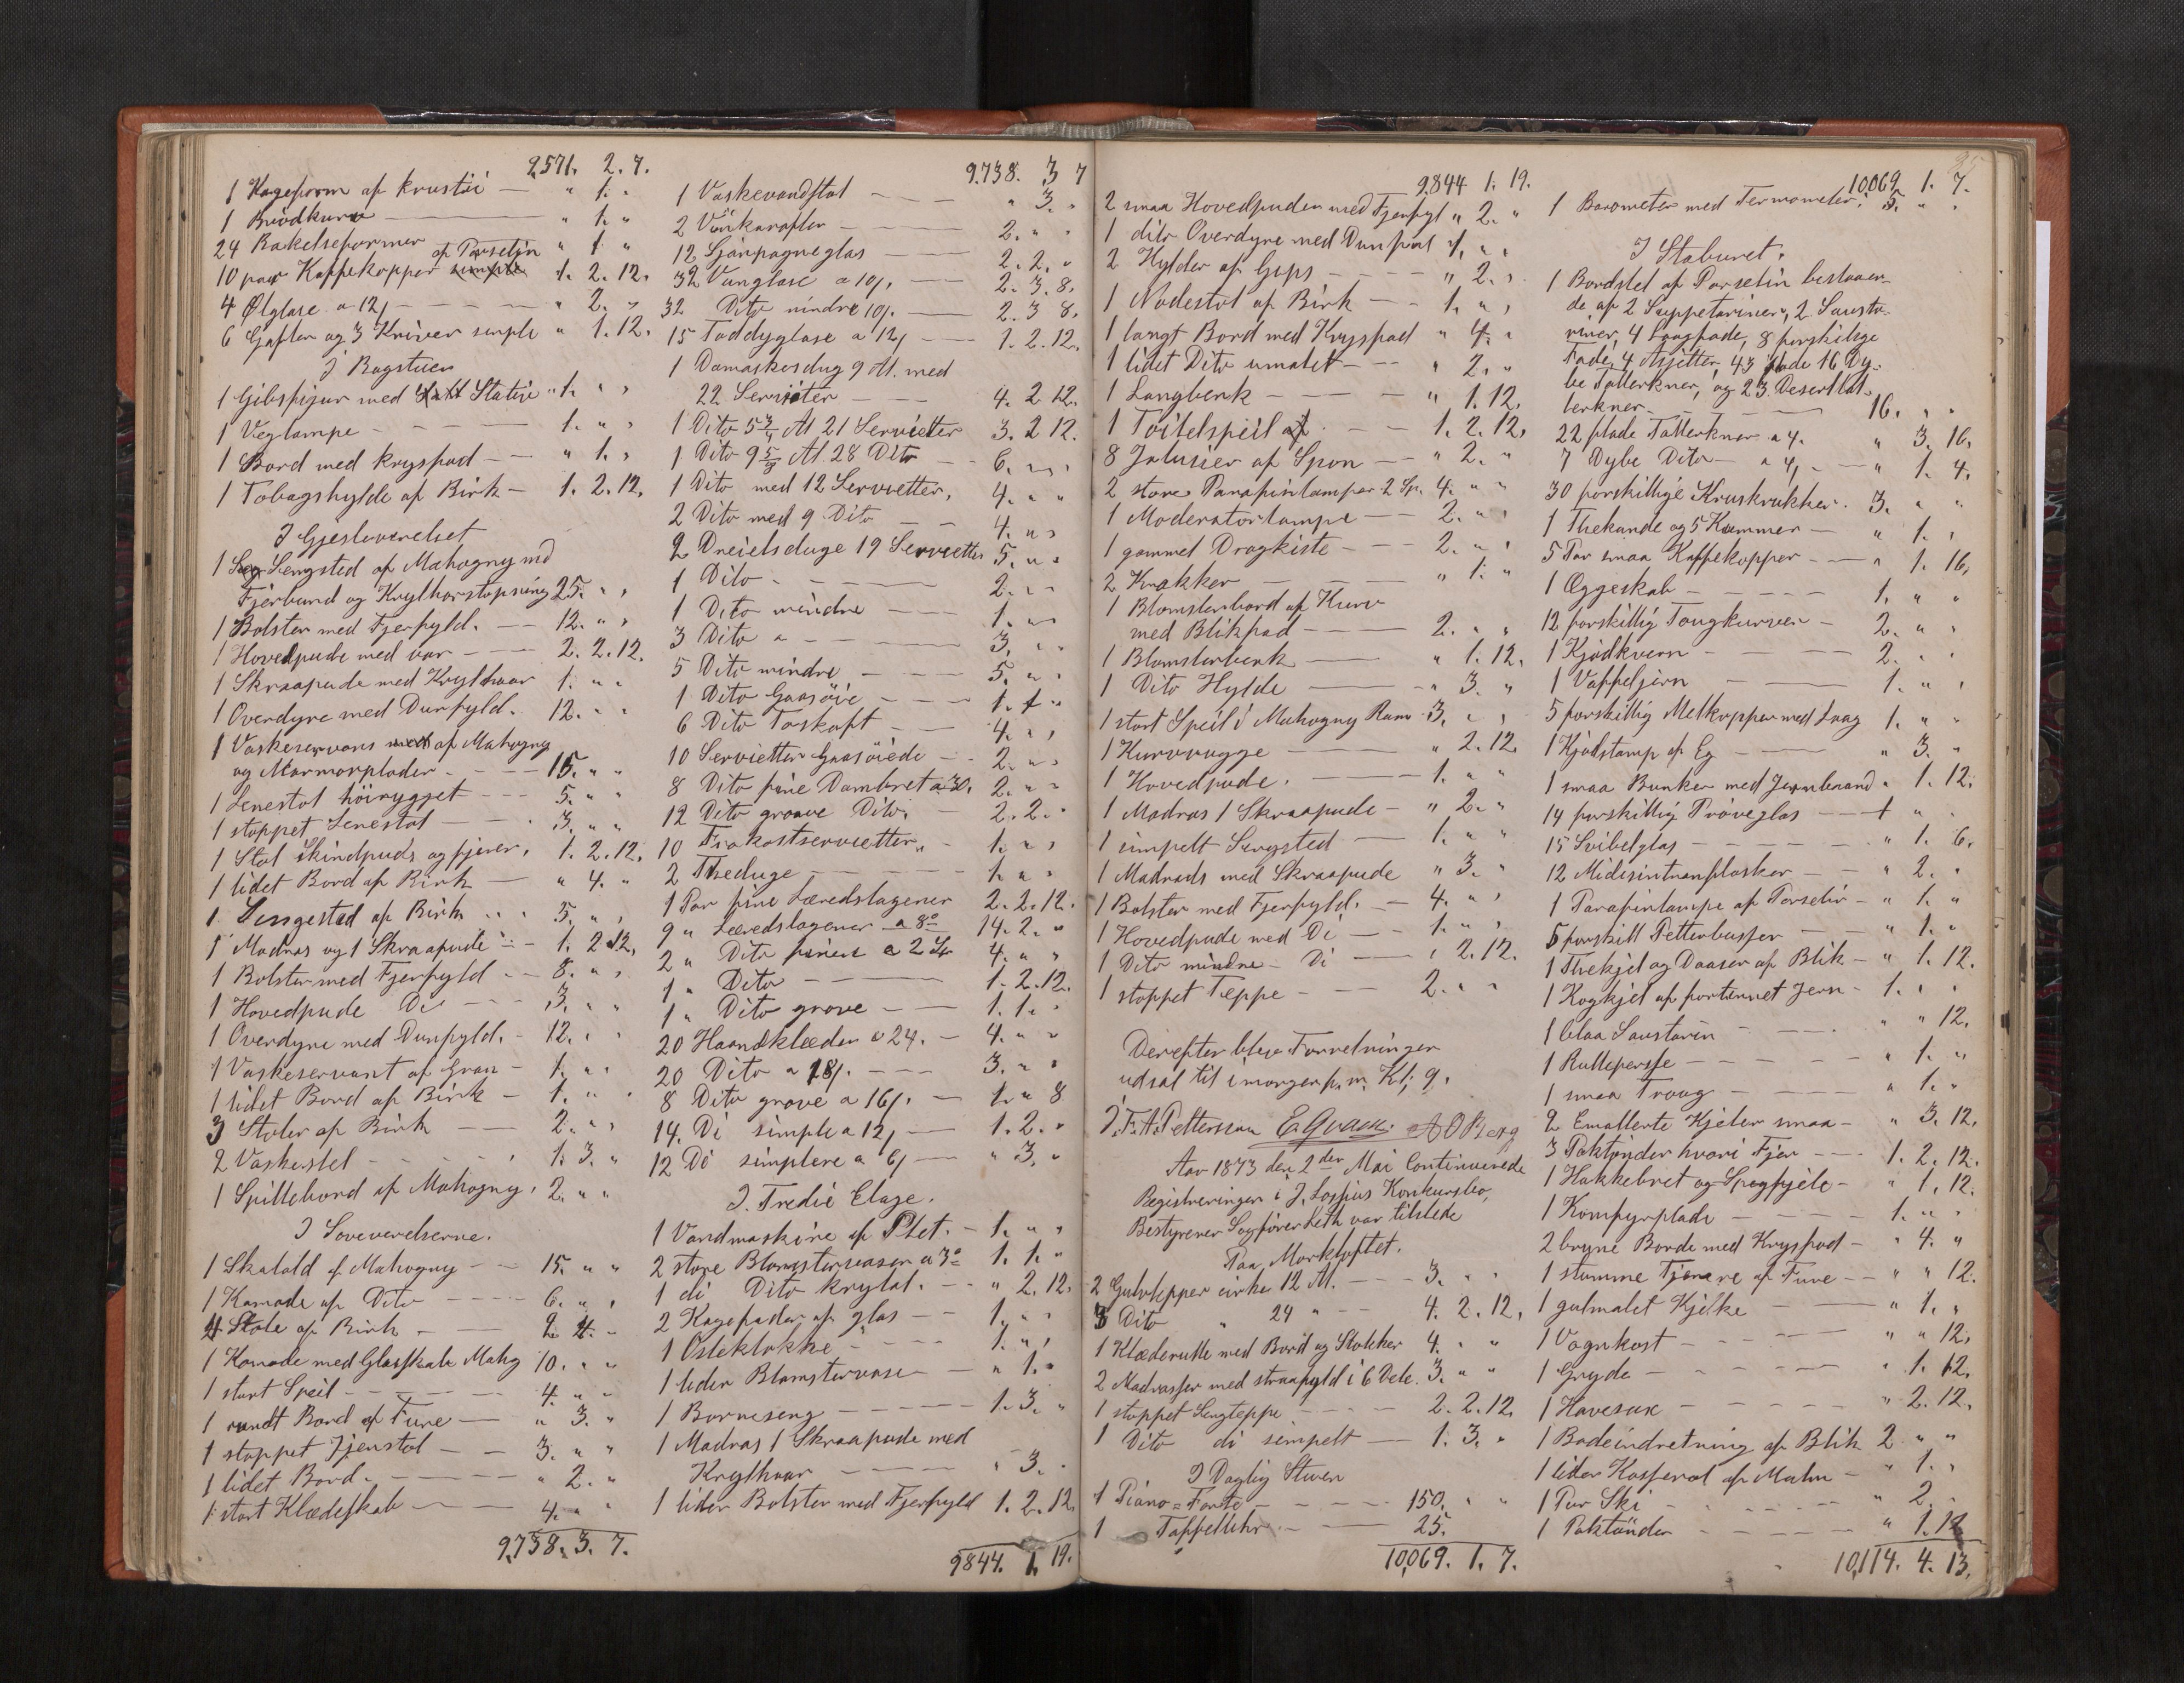 9571. 2. 7.
1 Kageform af Krustöi — " 1. "
1 Brödkurv — " 1. "
24 Bakelseformer " 1 "
10 par Kaffekopper simple af Porselin 1. 2. 12.
4 Ølglase a 12/ — " 2. "
6 Gafler og 3 Kniver simple " 1. 12.
I Bagstuen
1 Gibsfigur med Stative " 1. "
1 Veglampe — 1. " "
1 Bord med Kryspod — " 1. "
1 Tobagshylde af Birk — 1. 2. 12.
I Gjesteverelset
1 Sengsted af Mahogny md
Fjerbund og Krylharstopning 25. " "
1 Bolster med Fjerfyld. — 12. " "
1 Hovedpude med var — 2. 2. 12.
1 Skraapude med Krylhaar 1. " "
1 Overdyne med Dunfyld. 12. " "
1 Vaskeservans med af Mahogny
og Marmorplader. — 15. " "
1 Lenestol höirygget — 5. " "
1 stoppet Lenestol — 3. " "
1 Stol Skindpuds og fjerer, 1. 2. 12.
1 lidet Bord af Birk — " 4. "
1 Sengested af Birk — 5. " "
1 Madras og 1 Skraapude — 1. 2 12.
1 Bolster med Fjerfyld — 8. " "
1 Hovedpude Di — 3. " "
1 Overdyne med Dunfyld. - 12. " "
1 Vaskeservant af Gran — 1. " "
1 lidet Bord af Birk — 1. " "
3 Stoler af Birk — 2. " "
2 Vaskestel — 1. 3. "
1 Spillebord af Mahogny. 2. " "
I Soveverelserne.
1 Skatold af Mahogny — 15. " "
1 Komode af Dito — 6. " "
4 Stole af Birk — 2. 4. "
1 Komode med Glasskab Mahg 10. " "
1 stort Speil — 4. " "
1 rundt Bord af Fure — " 3. "
1 stoppet stol — 3. " "
1 lidet Bord. — " 2. "
1 stort Klædeskab — 4. " "
9,738. 3. 7.
9.738. 3 7
1 Vaskevandstol — " 3. "
2 Vinkarafler — 2. " "
12 Sjanpagneglas — 2. 2. "
32 Vinglase a 10/. — 2. 3. 8.
32 Dito mindre 10/. — 2. 3 8.
15 Toddyglase a 12/ — 1. 2. 12.
1 Damaskesdug 9 Al. med
22 Servieter — 4. 2 12.
1 Dito 5 3/4 Al 21 Servietter 3. 2 12.
1 Dito 9 5/8 Al. 28 Dito — 6. " "
1 Dito med 12 Servietter, 4. " "
2 Dito med 9 Dito — 4. " "
2 Dreielsduge 19 Servietter 5. " "
1 Dito — 2. " "
1 Dito mindre — 1. " "
3 Dito a — 3. " "
5 Dito mindre — 5. " "
1 Dito Gaasöie — 1. 1 "
6 Dito Toskaft — 4. " "
10 Servietter Gaasöiede — 2. " "
8 Dito fine Dambret a 30. 2. " "
12 Dito groave Dito. — 2. 2. "
10 Frokostservietter. — 1. " "
2 Theduge — 1. " "
1 Par fine Læredslagener 2. 2. 12.
9 " Læredslagener a 8° 14. 2. "
2 " Dito finere a 2 Sp 4. " "
1 " Dito — 1. 2. 12.
1 " Dito grove — 1. 1. "
20 Haandklæder a 24. — 4. " "
20 Dito a 18/. — 3. " "
8 Dito grove a 16/. — 1. " 8
14. Di simple a 12/ — 1. 2. "
12 Di simplere a 6/ — " 3. "
I Tredie Etage.
1 Vandmaskine af Plet. — 1. " "
2 store Blomstervaser a 3° 1. 1. "
1 di Dito krystal. — " 2. 12.
2 Kagefader af glas — 1. " "
1 Osteklokke — 1. " "
1 liden Blomstervase — " 1. "
1 Barneseng — 1. 3. "
1 Madras 1 Skraapude med
Krylhaar — " 3. "
1 liden Bolster med Fjerfyld 1. 2. 12.
9844. 1. 19.
9844 1. 19.
2 smaa Hovedpuder med Fjerfyl " 2. "
1 dito Overdyne med Dunfyld 1. " "
2 Hylder af Gips — " 2. "
1 Nodestol af Birk — 1. " "
1 langt Bord med Kryspod " 4. "
1 lidet Dito umalet — " 2. "
1 Langbenk — " 1. 12.
1 Toiletspeil — 1. 2. 12.
8 Jalusier af Spon — " 2. "
2 store Parafinlamper 2 Sp. 4. " "
1 Moderatorlampe — 2. " "
1 gammel Dragkiste — 2. " "
2 Krakker — " 1. "
1 Blomsterbord af Kurv
med Blikfad — 2. " "
1 Blomsterbenk — " 1. 12.
1 Dito Hylde — " 3. "
1 stort Speil i Mahogny Ram 3. " "
1 Kurvvugge — " 2. 12.
1 Hovedpude. — 1. " "
1 Madras 1 Skraapude — " 2. "
1 simpelt Sengsted — 1. " "
1 Madrads med Skraapude " 3. "
1 Bolster med Fjerfyld. — 4. " "
1 Hovedpude med Di — 1. " "
1 Dito mindre — Di — " 2. 12.
1 stoppet Teppe — 2. " "
Derefter blev Forretningen
udsat til imorgen f. m. Kl; 9.
F. A. Pettersen E. Qvam. A O Berg
Aar 1873 den 2den Mai Continuerede
Registreringen i J. Lossius Konkursbo,
Bestyreren Sagförer Leth var tilstede
Paa Morkloftet.
2 Gulvtepper cirka 12 Al. — 3. " "
3 Dito " 24 " — 4. 2. 12.
1 Klæderulle med Bord og Stokker 4. " "
2 Madrasser med straafyld i 6 Dele. 3. " "
1 stoppet Sengteppe — 2. 2. 12
1 Dito di simpelt — 1. 3. "
I Daglig Stuen
1 Piano=Forte — 150. " "
1 Taffelluhr — 25.
10,069. 1. 7.
10069. 1. 7.
1 Barometer med Termometer. 5. " "
I Staburet.
1 Bordstel af Porselin bestaaen-
de af 2 Suppeteriner, 2 Sauste-
riner, 4 Laagfade, 8 forskilige
Fade, 4 Asjetter, 43 flade 16 Dy-
be Tallerkner, og 23 Desertal-
lerkner — 16. " "
22 flade Tallerkner a 4. " 3. 16.
7 Dybe Dito a 4, — " 1. 4.
30 forskillige Kruskrukker. 3. " "
1 Thekande og 5 Kummer — " 1. "
5 Par smaa Kaffekopper — " 1. 16.
1 Æggeskab — 1. " "
12 forskillig Tougkurver — 2. " "
1 Kjödkvern — 2. " "
1 Vaffeljern — 1. " "
5 forskillig Melkopper med Laag 1. " "
1 Kjölstamp af Eg — " 3. "
1 smaa Bunker med Jernbeand " 1. 12.
14 forskillig Pröveglas — 1 " "
15 Svibelglas — " 1. 6.
12 Midisintranflasker — " 2. "
1 Parafinlampe af Porselin — " 1. "
5 forskill Petterbusser — " 1. "
1 Thekjel og Daaser af Blik — " 1. 12.
1 Kogkjel af fortinnet Jern — 1. " "
1 blaa Sausterin — " " 12.
1 Rullepersse — " 1. "
1 smaa Traug — " 1. "
2 Emallerte Kjeler smaa — " 3. 12.
3 Faktönder hvori Fjer — 1. 2. 12.
1 Hakkebret og Spegfjele — " 1. 12.
1 Komfyrplade — 1. " "
2 bryne Borde med Kryspod — " 4. "
1 stumme Tjenere af Fure — " " 12.
1 gulmalet Kjelke — " 1. "
1 Vognkost — " " 12.
1 Gryde — " 1. 12.
1 Havesax — " 2. 12.
1 Badeindretning af Blik 2 " "
1 liden Kasserol af Malm — " 1. "
1 Par Ski — " 2. "
1 Faktönder — " 1. 12
10,114. 4. 13.